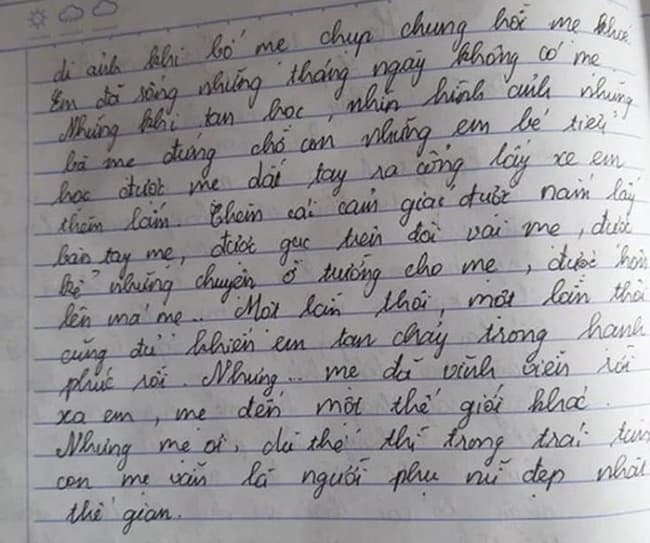 di ảnh khi bố mẹ chụp chung hồi mẹ khoẻ.
Em đã sống những tháng ngày không có mẹ.
Những khi tan học, nhìn hình ảnh những
bà mẹ đứng chờ con những em bé tiểu
học được mẹ dắt tay ra cổng lấy xe em
thèm lắm. Thèm cái cảm giác được nắm lấy
bàn tay mẹ, được gục trên đôi vai mẹ, được
kể những chuyện ở trường cho mẹ, được hôn
lên má mẹ.. Một lần thôi, một lần thôi
cũng đủ khiến em tan chảy trong hạnh
phúc rồi. Nhưng... mẹ đã vĩnh viễn rời
xa em, mẹ đến một thế giới khác.
Nhưng mẹ ơi, dù thế thì trong trái tim
con mẹ vẫn là người phụ nữ đẹp nhất
thế gian.